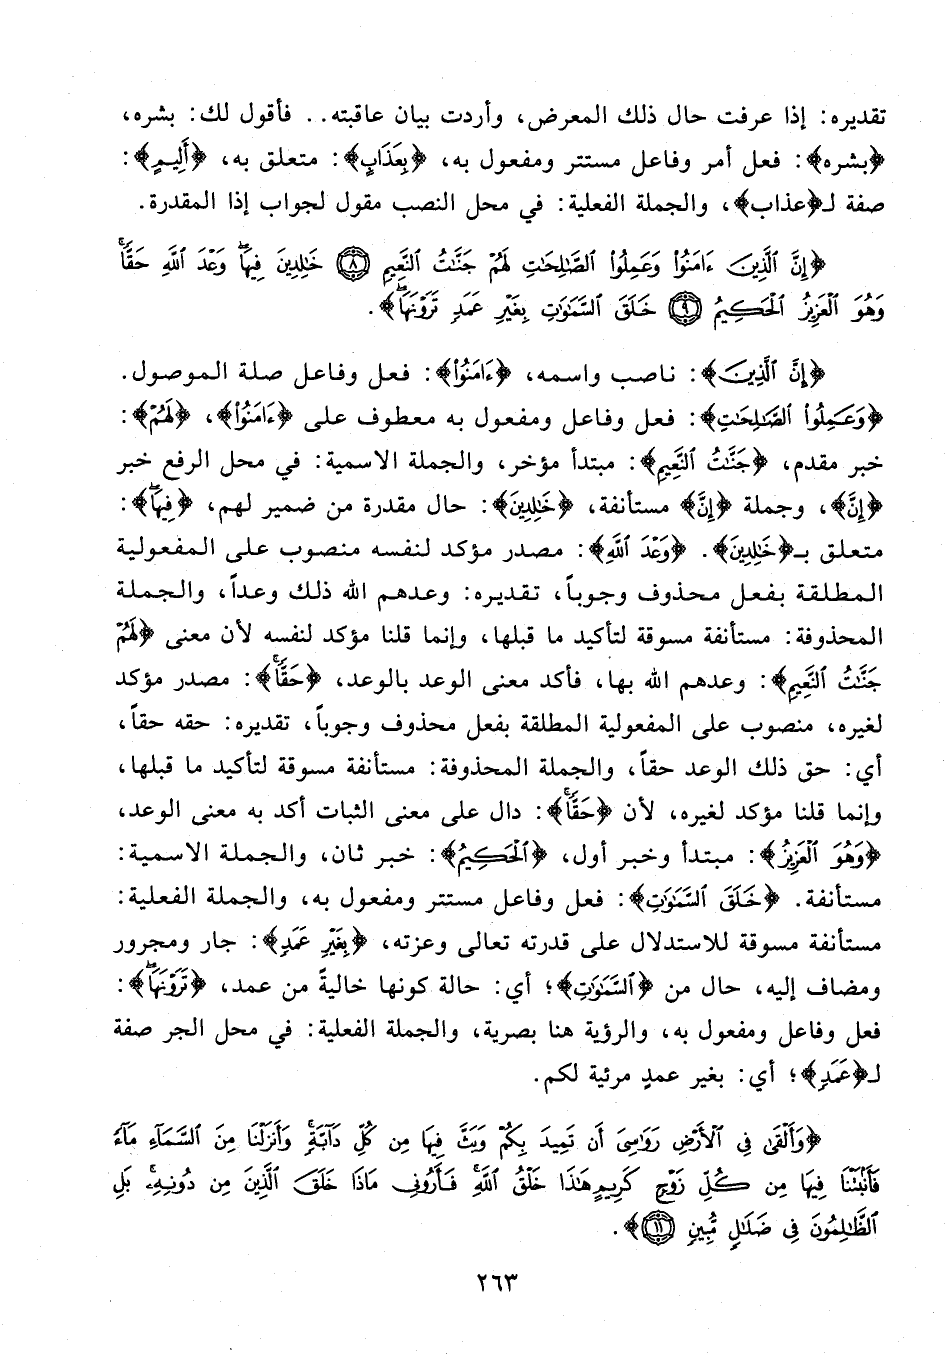 تقديره: إذا عرفت حال ذلك المعرض، وأردت بيان عاقبته.. فأقول لك: بشره،
﴿بشره﴾: فعل أمر وفاعل مستتر ومفعول به، ﴿بِعَذَابٍ﴾: متعلق به، ﴿أَلِيمٍ﴾:
صفة لـ﴿عذاب﴾، والجملة الفعلية: في محل النصب مقول لجواب إذا المقدرة.
﴿إِنَّ ٱلَّذِينَ ءَامَنُوا۟ وَعَمِلُوا۟ ٱلصَّٰلِحَٰتِ لَهُمْ جَنَّٰتُ ٱلنَّعِيمِ ٨ خَٰلِدِينَ فِيهَاۖ وَعْدَ ٱللَّهِ حَقًّاۚ
وَهُوَ ٱلْعَزِيزُ ٱلْحَكِيمُ ٩ خَلَقَ ٱلسَّمَٰوَٰتِ بِغَيْرِ عَمَدٍ تَرَوْنَهَاۖ﴾.
﴿إِنَّ ٱلَّذِينَ﴾: ناصب واسمه، ﴿ءَامَنُوا۟﴾: فعل وفاعل صلة الموصول.
﴿وَعَمِلُوا۟ ٱلصَّٰلِحَٰتِ﴾: فعل وفاعل ومفعول به معطوف على ﴿ءَامَنُوا۟﴾، ﴿لَهُمْ﴾:
خبر مقدم، ﴿جَنَّٰتُ ٱلنَّعِيمِ﴾: مبتدأ مؤخر، والجملة الاسمية: في محل الرفع خبر
﴿إِنَّ﴾، وجملة ﴿إِنَّ﴾ مستأنفة، ﴿خَٰلِدِينَ﴾: حال مقدرة من ضمير لهم، ﴿فِيهَاۖ﴾:
متعلق بـ﴿خَٰلِدِينَ﴾. ﴿وَعْدَ ٱللَّهِ﴾: مصدر مؤكد لنفسه منصوب على المفعولية
المطلقة بفعل محذوف وجوباً، تقديره: وعدهم الله ذلك وعداً، والجملة
المحذوفة: مستأنفة مسوقة لتأكيد ما قبلها، وإنما قلنا مؤكد لنفسه لأن معنى ﴿لَهُمْ
جَنَّٰتُ ٱلنَّعِيمِ﴾: وعدهم الله بها، فأكد معنى الوعد بالوعد، ﴿حَقًّاۚ﴾: مصدر مؤكد
لغيره، منصوب على المفعولية المطلقة بفعل محذوف وجوباً، تقديره: حقه حقاً،
أي: حق ذلك الوعد حقاً، والجملة المحذوفة: مستأنفة مسوقة لتأكيد ما قبلها،
وإنما قلنا مؤكد لغيره، لأن ﴿حَقًّاۚ﴾: دال على معنى الثبات أكد به معنى الوعد،
﴿وَهُوَ ٱلْعَزِيزُ﴾: مبتدأ وخبر أول، ﴿ٱلْحَكِيمُ﴾: خبر ثان، والجملة الاسمية:
مستأنفة. ﴿خَلَقَ ٱلسَّمَٰوَٰتِ﴾: فعل وفاعل مستتر ومفعول به، والجملة الفعلية:
مستأنفة مسوقة للاستدلال على قدرته تعالى وعزته، ﴿بِغَيْرِ عَمَدٍ﴾: جار ومجرور
ومضاف إليه، حال من ﴿ٱلسَّمَٰوَٰتِ﴾؛ أي: حالة كونها خاليةً من عمد، ﴿تَرَوْنَهَاۖ﴾:
فعل وفاعل ومفعول به، والرؤية هنا بصرية، والجملة الفعلية: في محل الجر صفة
لـ﴿عَمَدٍ﴾؛ أي: بغير عمدٍ مرئية لكم.
﴿وَأَلْقَىٰ فِى ٱلْأَرْضِ رَوَٰسِىَ أَن تَمِيدَ بِكُمْ وَبَثَّ فِيهَا مِن كُلِّ دَآبَّةٍۚ وَأَنزَلْنَا مِنَ ٱلسَّمَآءِ مَآءً
فَأَنۢبَتْنَا فِيهَا مِن كُلِّ زَوْجٍ كَرِيمٍ هَٰذَا خَلْقُ ٱللَّهِ فَأَرُونِى مَاذَا خَلَقَ ٱلَّذِينَ مِن دُونِهِۦۚ بَلِ
ٱلظَّٰلِمُونَ فِى ضَلَٰلٍ مُّبِينٍ ١١﴾.
٢٦٣